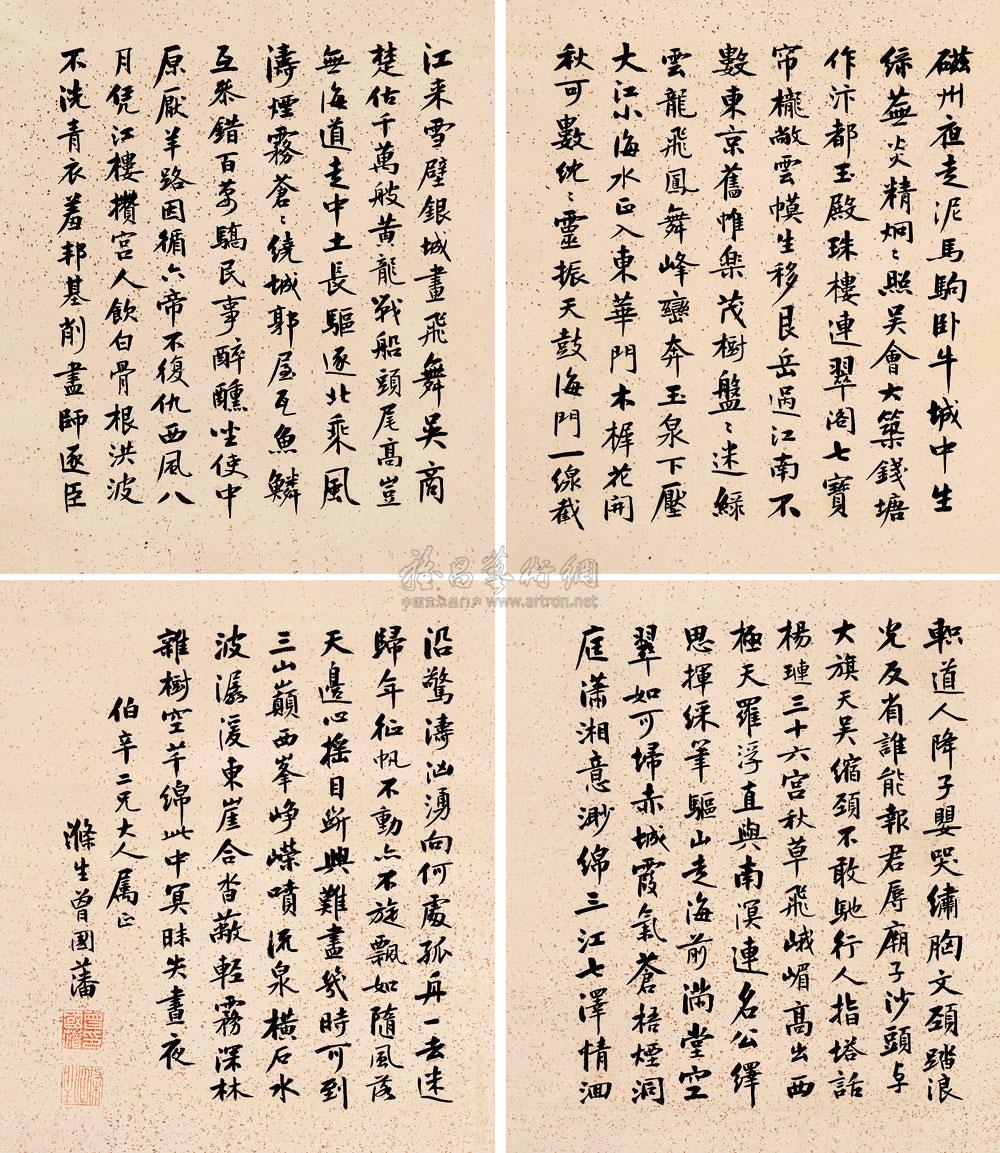 磁州夜走泥馬駒卧牛城中生
綠蕪炎精炯〻照吳會大築錢塘
作汴都玉殿珠樓連翠閣七寶
帘櫳敞雲幙生移艮岳過江南不
數東京舊帷樂茂樹盤〻迷綠
雲龍飛鳳舞峰巒奔玉泉下壓
大江小海水正入東華門木樨花開
秋可數沈〻靈振天鼓海門一線截
江来雪壁銀城畫飛舞吳商
楚估千萬艘黄龍戰船頭尾高豈
無海道走中土長驅逐北乘風
濤煙霧蒼〻繞城郭屋瓦魚鱗
互叅錯百萬驕民事醉醺坐使中
原厭羊酪因循六帝不復仇西風八
月凭江樓攢宫人飲白骨根洪波
不洗青衣羞邦基削盡師逐臣
軹道人降子嬰哭繡胸文頸踏浪
光反省誰能報君辱廟子沙頭与
大旗天吳缩頸不敢馳行人指塔話
楊璉三十六宫秋草飛峨嵋髙出西
極天羅浮直與南溟連名公繹
思揮綵筆驅山走海前满堂空
翠如可埽赤城霞氣蒼梧煙洞
庭瀟湘意渺绵三江七澤情洄
沿驚濤汹湧向何處孤舟一去迷
歸年征帆不動亦不旋飄如隨風落
天邊心摇目斷興難盡幾時可到
三山巔西峯峥嶸噴流泉横石水
波潺湲東崖合沓蔽輕霧深林
雜樹空芊绵此中冥昧失晝夜
伯辛二兄大人属正
滌生曾國藩
雅昌藝術網
中国艺术品门户 www.artron.net